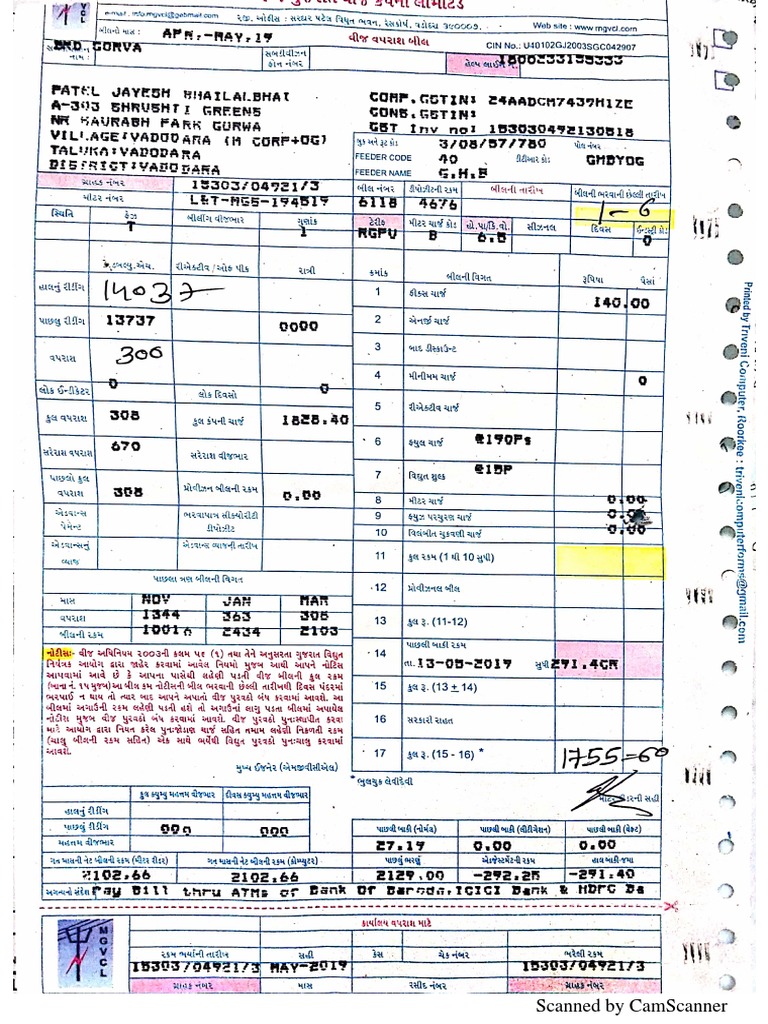 મધ્ય ગુજરાત વીજ કંપની લીમીટેડ
e-mail : info.mgvcl@gebmail.com
રજી. ઓફીસ : સરદાર પટેલ વિદ્યુત ભવન, રેસકોર્ષ, વડોદરા ૩૯૦૦૦૭.
Web site : www.mgvcl.com
બીલનો માસ : APR.-MAY.19
વીજ વપરાશ બીલ
CIN No.: U40102GJ2003SGC042907
નામ : SRD.GORVA
સબડીવીઝન ફોન નંબર
હેલ્પ લાઈન નં. 1800233155333
PATEL JAYESH BHAILALBHAI
A-303 SHRUSHTI GREENS
NR SAURABH PARK GORWA
VILLAGE:VADODARA (M CORP+OG)
TALUKA:VADODARA
DISTRICT:VADODARA
COMP.GSTIN: 24AADCM7439H1ZE
CONS.GSTIN:
GST Inv no: 153030492130518
બુક અને રૂટ કો: 3/08/57/780 પોલ નંબર
FEEDER CODE 40 ટીટીઆર કો: GMBYOG
FEEDER NAME G.H.B
ગ્રાહક નંબર 15303/04921/3
મીટર નંબર L&T-MG5-194519
બીલ નંબર ડીપોઝીટની રકમ બીલની તારીખ બીલની ભરવાની છેલ્લી તારીખ
6118 4676 1-6
સ્થિતિ ફેઝ બીલીંગ વીજભાર ગુણાંક
T 1
ટેરીફ મીટર ચાર્જ કો: હો.પા/કિ.વો. સીઝનલ દિવસ ઈન્ડસ્ટ્રી કો:
RGPU B 6.5 0
કે.ડબલ્યુ.એચ. રીએક્ટીવ / ઓફ પીક રાત્રી
હાલનું રીડીંગ 14037
પાછલુ રીડીંગ 13737 0000
વપરાશ 300
લોક ઈન્ડીકેટર 0 લોક દિવસો 0
કુલ વપરાશ 308 કુલ કંપની ચાર્જ 1828.40
સરેરાશ વપરાશ 670 સરેરાશ વીજભાર
પાછલો કુલ વપરાશ 308 પ્રોવીઝન બીલની રકમ 0.00
એડવાન્સ પેમેન્ટ ભરવાપાત્ર સીક્યોરીટી ડીપોઝીટ
એડવાન્સનું વ્યાજ એડવાન્સ વ્યાજની તારીખ
પાછલા ત્રણ બીલની વિગત
માસ NOV JAN MAR
વપરાશ 1344 363 308
બીલની રકમ 10016 2434 2103
ક્રમાંક બીલની વિગત રૂપિયા પૈસાં
1 ફીક્સ ચાર્જ 140.00
2 એનર્જી ચાર્જ
3 બાદ ડીસ્કાઉન્ટ
4 મીનીમમ ચાર્જ 0
5 રીએક્ટીવ ચાર્જ
6 ફયુલ ચાર્જ @190Ps
7 વિદ્યુત શુલ્ક @15P
8 મીટર ચાર્જ 0.00
9 ફયુઝ પરચુરણ ચાર્જ 0.00
10 વિલંબીત ચુકવણી ચાર્જ 0.00
11 કુલ રકમ (1 થી 10 સુધી)
12 પ્રોવીઝનલ બીલ
13 કુલ રૂ. (11-12)
14 પાછલી બાકી રકમ
તા.13-05-2019 સુધી 291.4CR
15 કુલ રૂ. (13 ± 14)
16 સરકારી રાહત
17 કુલ રૂ. (15 - 16) * 1755=60
* ભુલચુક લેવીદેવી
મીટર રીડરની સહી
નોટીસ:- વીજ અધિનિયમ ૨૦૦૩ની કલમ ૫૬ (૧) તથા તેને અનુસરતા ગુજરાત વિદ્યુત
નિયંત્રક આયોગ દ્વારા જાહેર કરવામાં આવેલ નિયમો મુજબ આથી આપને નોટિસ
આપવામાં આવે છે કે આપના પાસેથી લહેણી પડતી વીજ બીલની કુલ રકમ
(ખાના નં. ૧૫ મુજબ) આ બીલ કમ નોટીસની બીલ ભરવાની છેલ્લી તારીખથી દિવસ પંદરમાં
ભરપાઈ ન થાય તો ત્યાર બાદ આપને અપાતો વીજ પુરવઠો બંધ કરવામાં આવશે. આ
બીલમાં અગાઉની રકમ લહેણી પડતી હશે તો અગાઉનાં લાગુ પડતા બીલમાં અપાયેલ
નોટીશ મુજબ વીજ પુરવઠો બંધ કરવામાં આવશે. વીજ પુરવઠો પુનઃસ્થાપીત કરવા
માટે આયોગ દ્વારા નિયત કરેલ પુનઃજોણ ચાર્જ સહિત તમામ લહેણી નિકળતી રકમ
(ચાલુ બીલની રકમ સહિત) એક સાથે ભર્યેથી વિદ્યુત પુરવઠો પુનઃચાલુ કરવામાં
આવશે.
મુખ્ય ઈજનેર (એમજીવીસીએલ)
કુલ ક્યુમ્યુ મહત્તમ વીજભાર દીવસ ક્યુમ્યુ મહત્તમ વીજભાર
હાલનું રીડીંગ
પાછલું રીડીંગ 000 000
મહત્તમ વીજભાર
પાછલી બાકી (નોર્મલ) પાછલી બાકી (લીટીગેશન) પાછલી બાકી (વેલ્ટ)
27.19 0.00 0.00
ગત માસની નેટ બીલની રકમ (મીટર રીડર) ગત માસની નેટ બીલની રકમ (કોમ્પ્યુટર) પાછલુ ભરણું એડજેસ્ટમેન્ટની રકમ હાલ બાકી-જમા
2102.66 2102.66 2129.00 -292.25 -291.40
અગત્યનો સંદેશ Pay Bill thru ATMs of Bank Of Baroda,ICICI Bank & HDFC Ba
MGVCL
કાર્યાલય વપરાશ માટે
રકમ ભર્યાની તારીખ સહી કેસ ચેક નંબર ભરેલી રકમ
15303/04921/3 MAY-2019 15303/04921/3
ગ્રાહક નંબર માસ રસીદ નંબર ગ્રાહક નંબર
Printed by Triveni Computer, Roorkee : trivenicomputerforms@gmail.com
Scanned by CamScanner